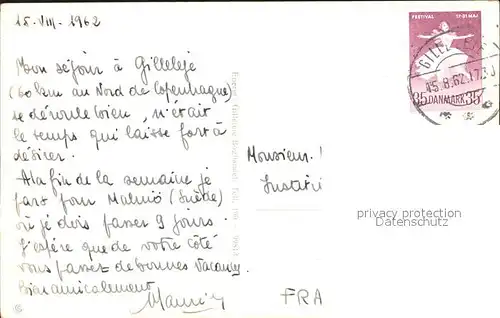 15-VIII-1962
Mon séjour à Gilleleje
(60 km au Nord de Copenhague)
se déroule bien, n'était
le temps qui laisse fort à
désirer.
A la fin de la semaine je
pars pour Malmö (Suède)
où je dois passer 9 jours.
J'espère que de votre côté
vous passez de bonnes vacances
Bien amicalement
FESTIVAL 17-31 MAJ
GILLELEJE
15.8.62.17
35 DANMARK 35
Monsieur.
FRA
privacy protection
Datenschutz